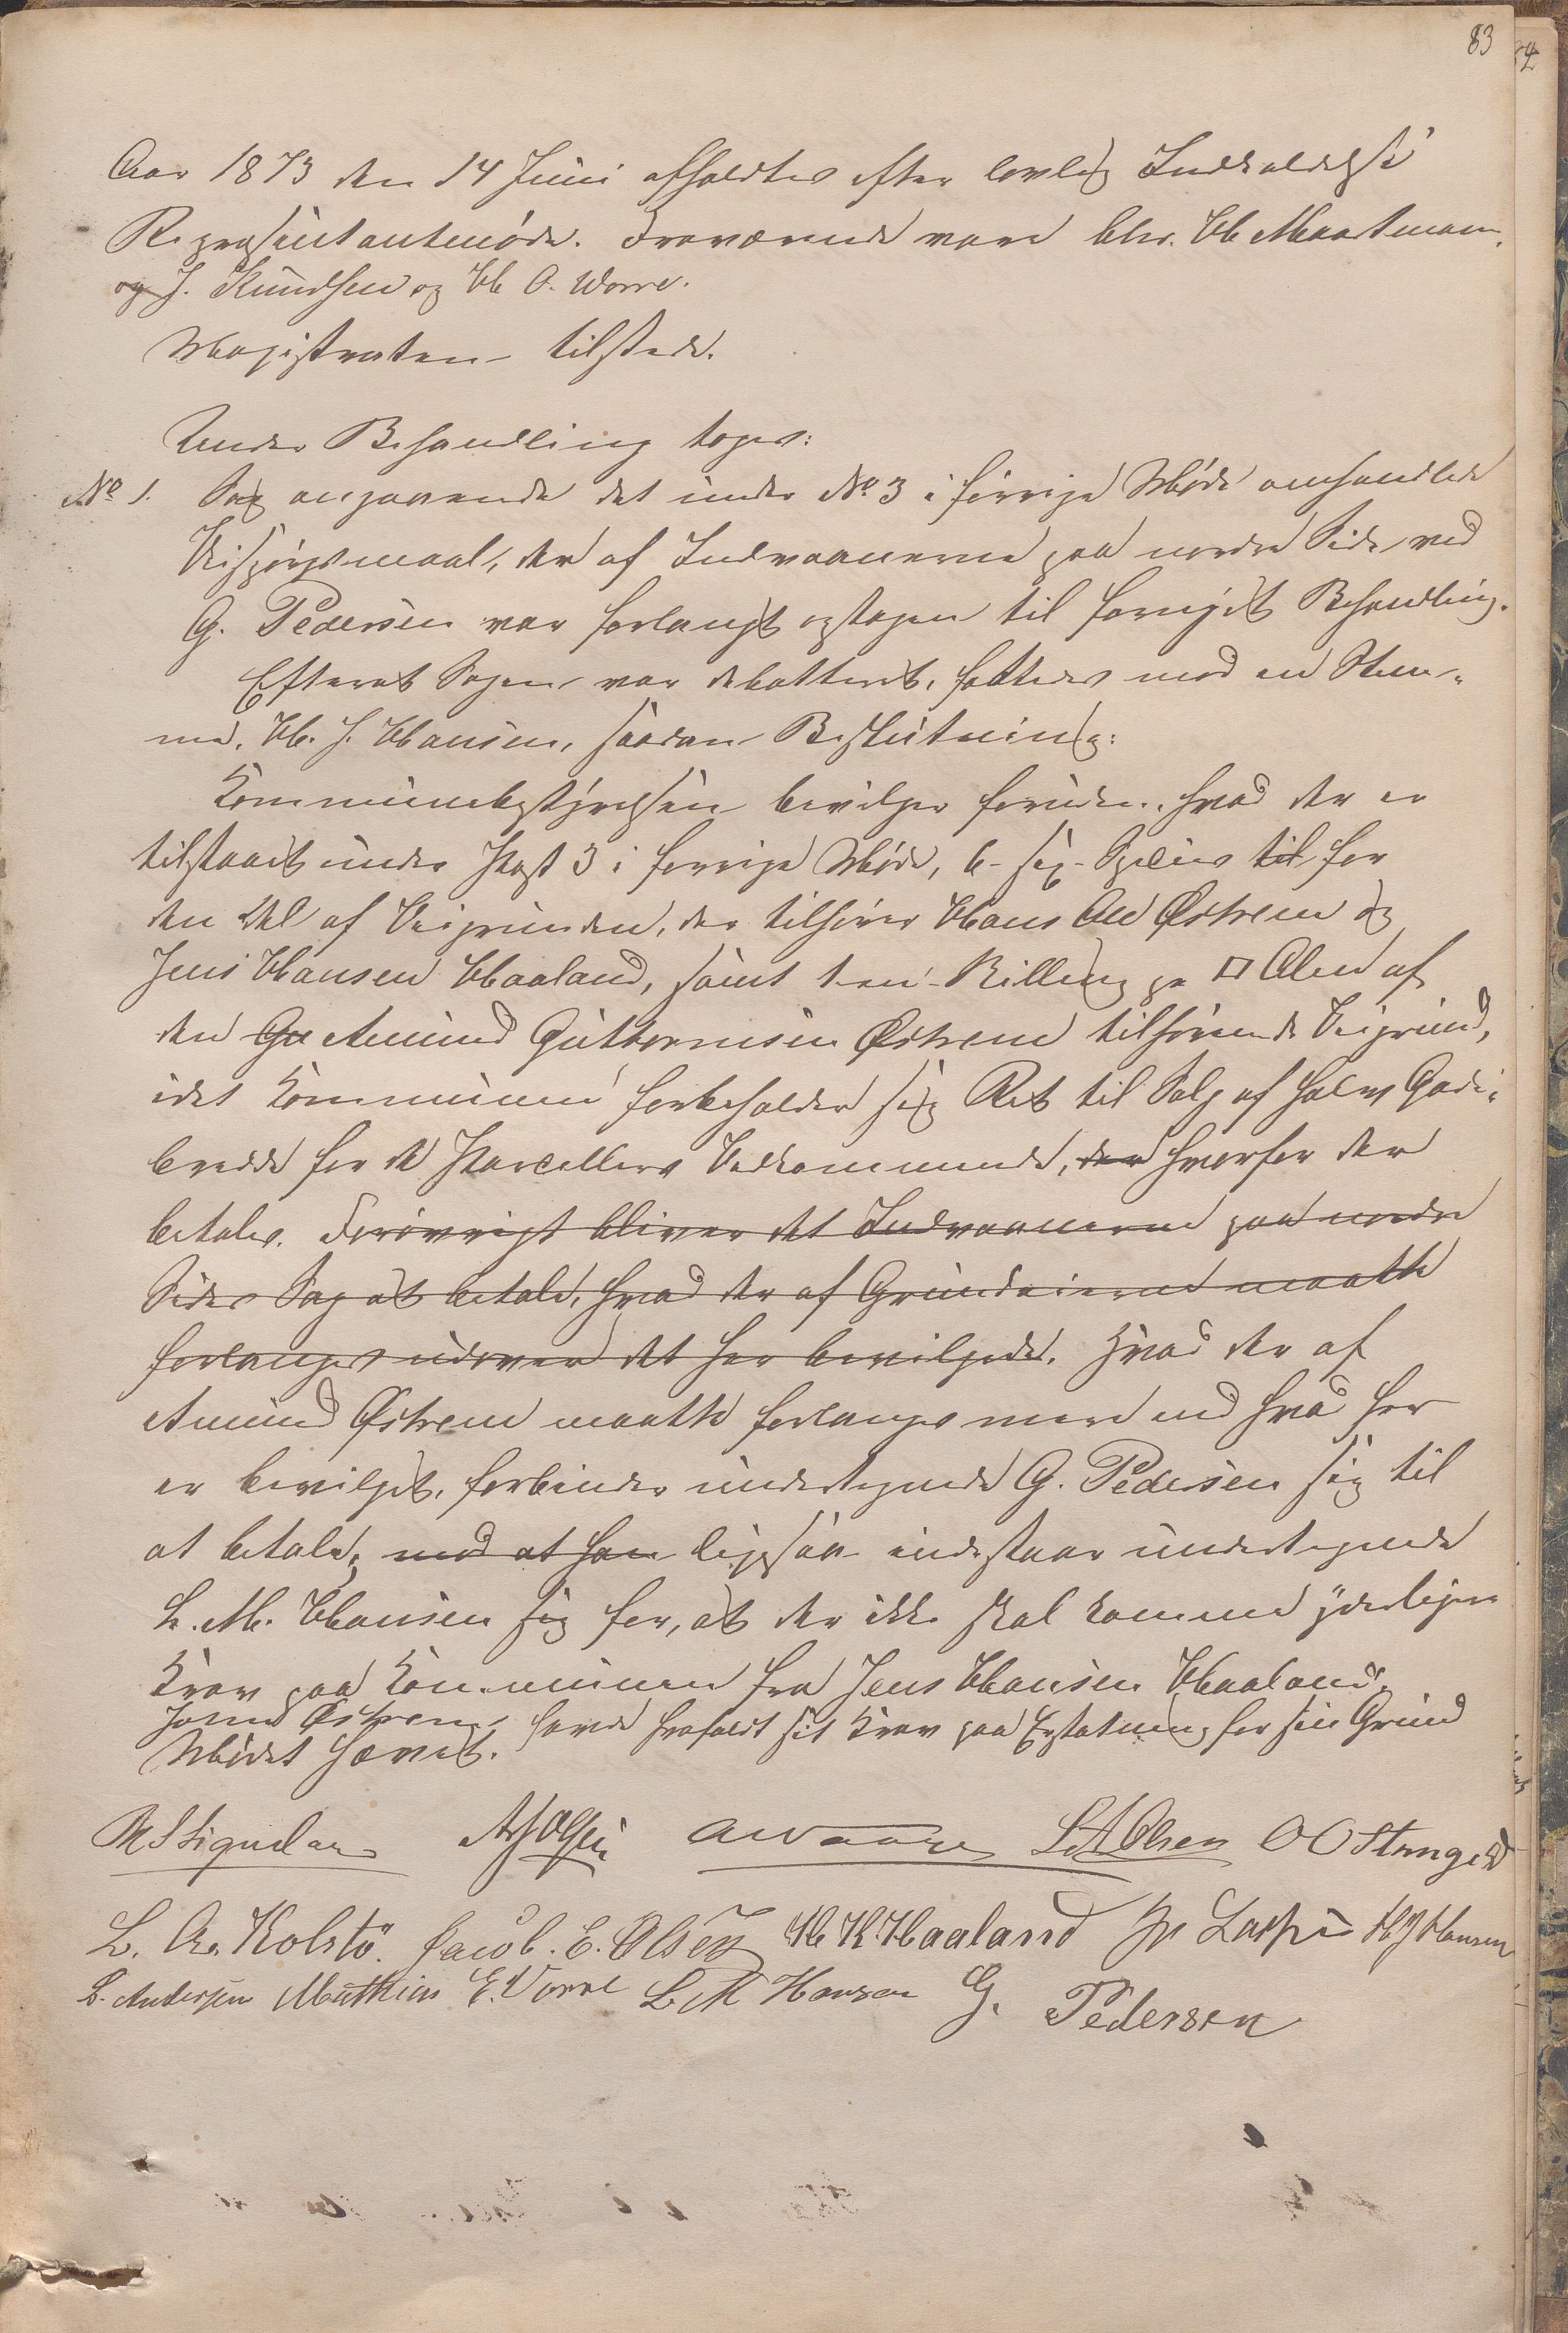 83
Aar 1873 den 14 Juni afholdtes efter lovlig Indkaldelse
Repræsentantmøde. Fraværende vare Chr. H. Maartmann,
og J. Knudsen og H. A. Worre.
Magistraten tilstede.
Under Behandling toges:
No 1. Sag angaaende det under No 3 i forrige Møde omhandlede
Veispørgsmaal, der af Indvaanerne paa nordre Side ved
G. Pedersen var forlangt optagen til fornyet Behandling.
Efterat Sagen var debatteret, fattedes mod en Stem-
me, H. J. Hansen, saadan Beslutning:
Kommunebestyrelsen bevilger foruden, hvad der er
tilstaaet under Post 3 i forrige Møde, 6 - sex - Spdlr til for
den Del af Veigrunden, der tilhører Hans Østrem og
Jens Hansen Haaland, samt 1 - en - Skilling pr □ Alen af
den Gu Amund Guttormsen Østrem tilhørende Veigrund,
idet Kommunen forbeholder sig Ret til Salg af halve Gade-
bredde for de Parcellers Vedkommende, der hvorfor der
betales. Forøvrigt bliver det Indvaanerne paa nordre
Sides Sag at betale, hvad der af Grundeierne maatte
forlanges udover det her bevilgede. Hvad der af
Amund Østrem maatte forlanges mere end hvad her
er bevilget, forbinder undertegnede G. Pedersen sig til
at betale; med at han ligesaa indestaar undertegnede
L. M. Hansen sig for, at der ikke skal komme yderligere
Krav paa Kommunen fra Jens Hansen Haaland.
Østrem havde frafaldt sit Krav paa Erstatning for sin Grund
Mødet hævet.
O O Stangeland
L. A. Kolstö. Jacob. E. Olsen H K Haaland H J Hansen
L. Andersen Matthias E. Vorre L M Hansen G. Pedersen